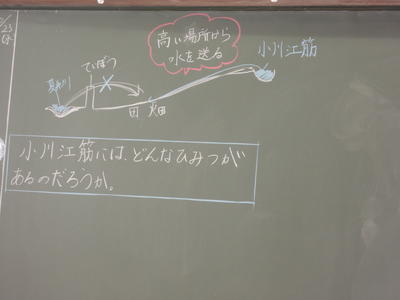 高い場所から
水を送る
小川江筋
ていぼう
田 畑
小川江筋には、どんなひみつが
あるのだろうか。